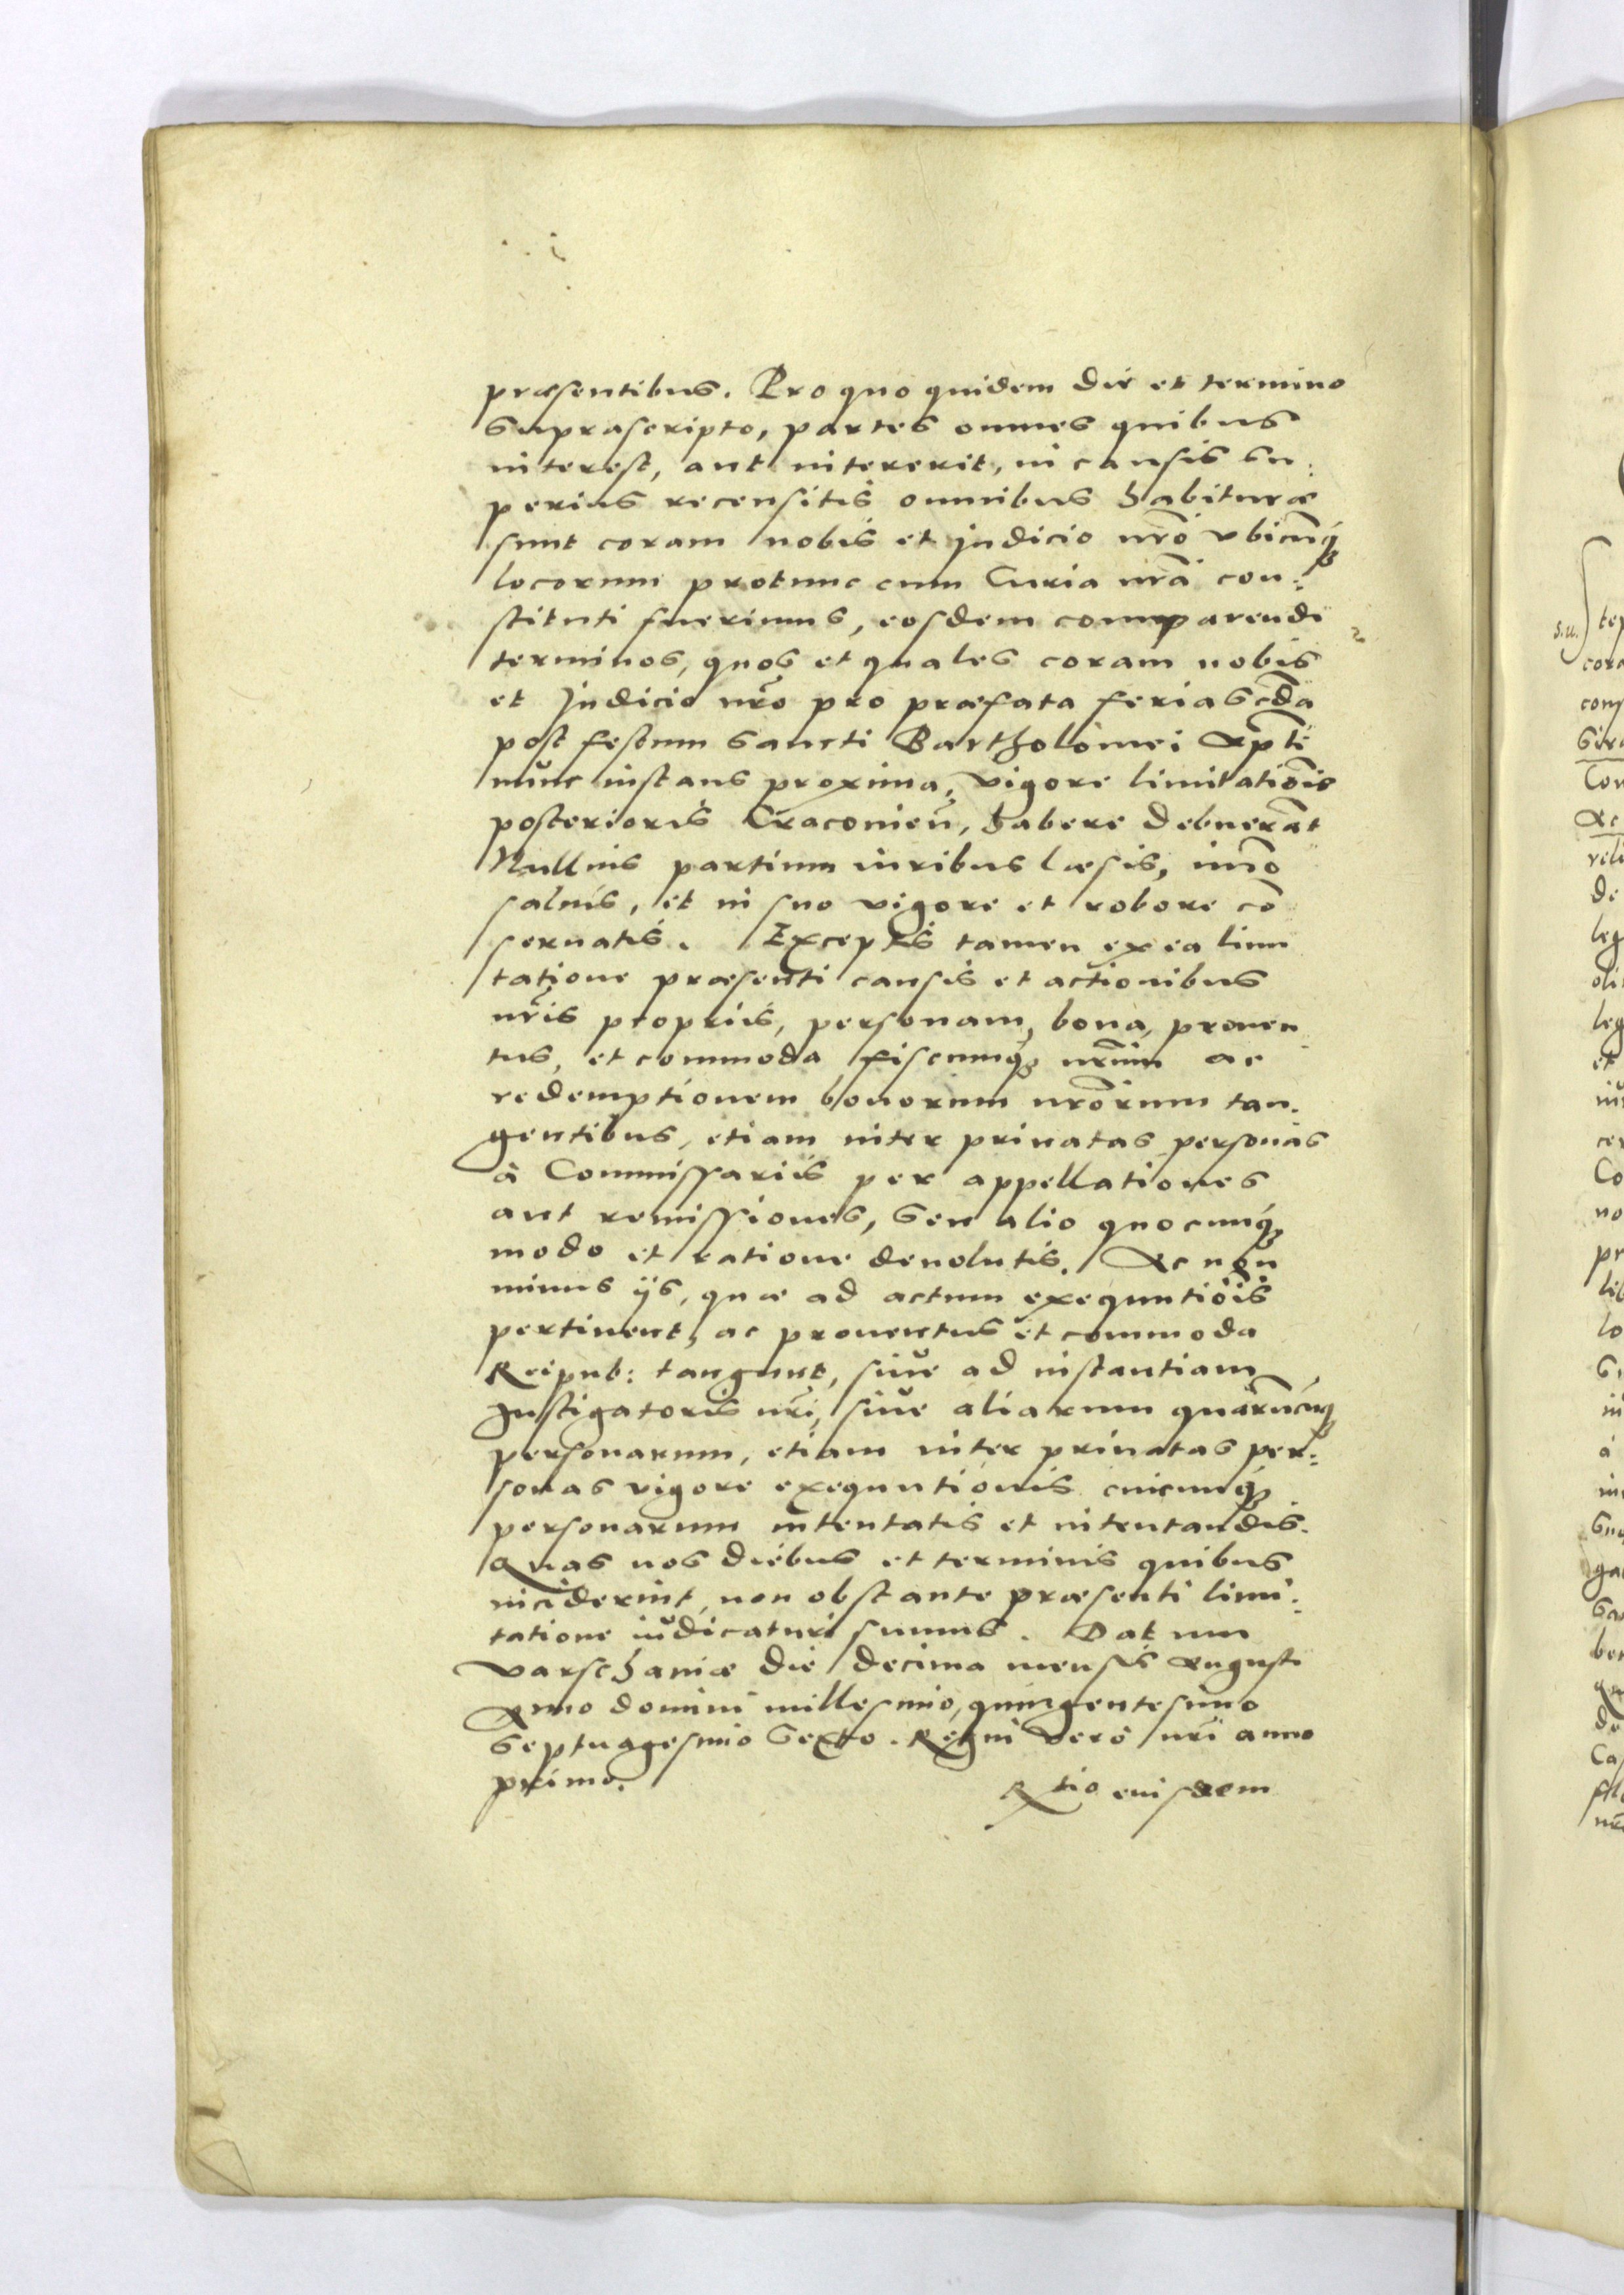 præsentibus. Pro quo quidem die et termino
suprascripto, partes omnes quibus
interest, aut intererit, in causis su:
perius recensitis omnibus habituræ
sunt coram nobis et judicio nr̃o vbicunq3
locorum protunc cum Curia nrã con:
stituti fuerimus, eosdem comparendi
terminos, quos et quales coram nobis
et Judicio nr̃o pro præfata feria scđa
post festum Sancti Bartholomei Apłi
nunc instans proxima, vigore limitatiõis
posterioris Cracovieñ, habere debuerãt
Nullius partium iuribus læsis, imo
saluis, et in suo vigore et robore cõ
seruatis. Exceptis tamen ex ea limi
tatione præsenti causis et actionibus
nr̃is proprijs, personam, bona, prouen
tus, et commoda fiscumq3 nr̃um ac
redemptionem bonorum nr̃orum tan.
gentibus, etiam inter priuatas personas
à Commissarijs per appellationes
aut remissiones, seu alio quocunq3
modo et ratione deuolutis. Ac non
minus ijs, quæ ad actum exequutiõis
pertinent, ac prouentus et commoda
Reipub: tangunt, siue ad instantiam
Instigatoris nr̃i, siue aliarum quarũcũq3
personarum, etiam inter priuatas per:
sonas vigore exequutionis cuicunq3
personarum intentatis et intentandis.
Quas nos diebus et terminis quibus
inciderint, non obstante præsenti limi:
tatione iudicaturi sumus. Datum
Varschauiæ die decima mensis Augusti
Anno domini millesimo, quingentesimo
Septuagesimo Sexto. Regni vero nr̃i anno
primo.
Rtio eiusdem
s.u.